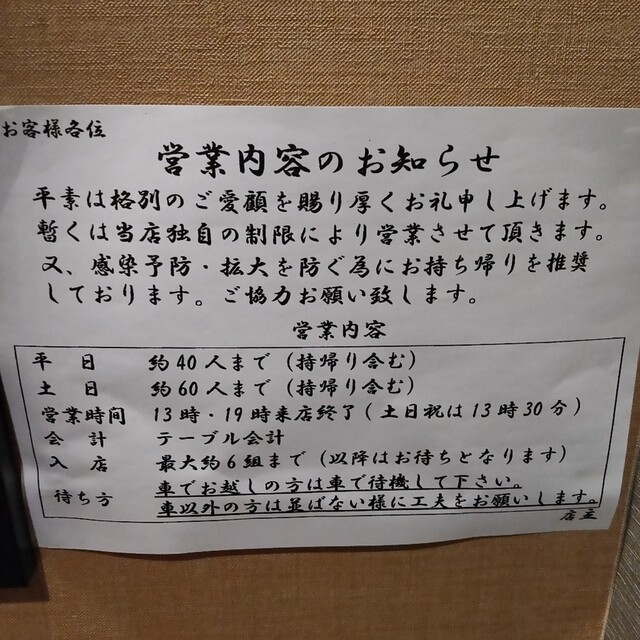 お客様各位
営業内容のお知らせ
平素は格別のご愛顧を賜り厚くお礼申し上げます。
暫くは当店独自の制限により営業させて頂きます。
又、感染予防・拡大を防ぐ為にお持ち帰りを推奨
しております。ご協力お願い致します。
営業内容
平　日　約40人まで（持帰り含む）
土　日　約60人まで（持帰り含む）
営業時間　13時・19時来店終了（土日祝は13時30分）
会　計　テーブル会計
入　店　最大約6組まで（以降はお待ちとなります）
待ち方　車でお越しの方は車で待機して下さい。
車以外の方は並ばない様に工夫をお願いします。
店主